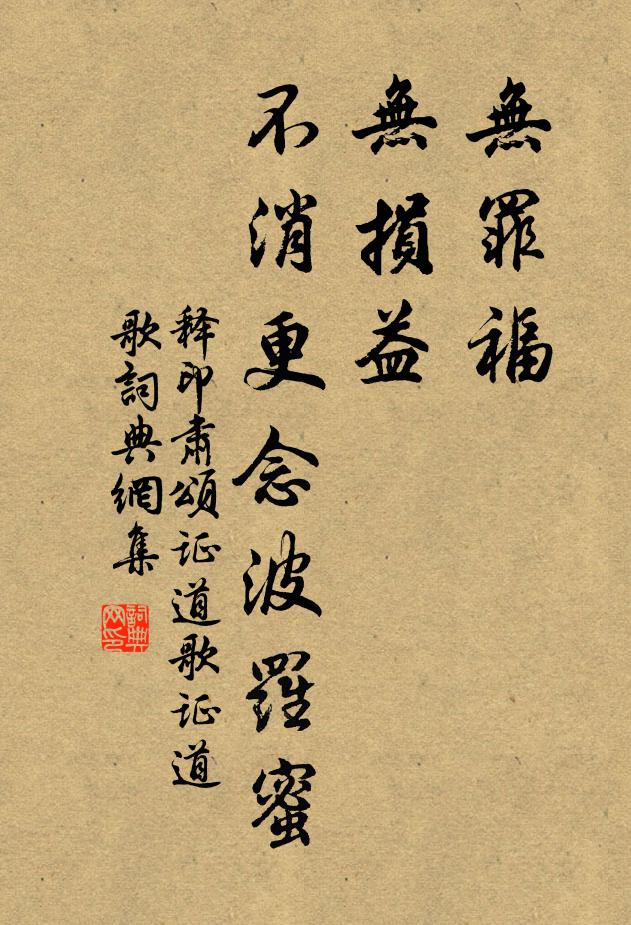 無罪福
無損益
不消更念波羅蜜
释印肃頌证道歌证道
歌詞典網集
詞典
网印